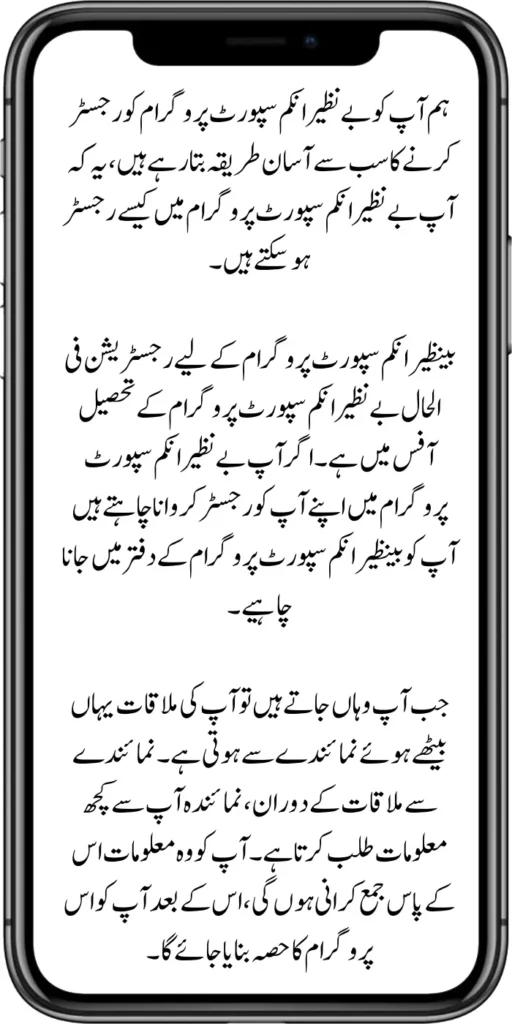 ہم آپ کو بے نظیر انکم سپورٹ پروگرام کو رجسٹر
کرنے کا سب سے آسان طریقہ بتا رہے ہیں، یہ کہ
آپ بے نظیر انکم سپورٹ پروگرام میں کیسے رجسٹر
ہو سکتے ہیں۔
بینظیر انکم سپورٹ پروگرام کے لیے رجسٹریشن فی
الحال بے نظیر انکم سپورٹ پروگرام کے تحصیل
آفس میں ہے۔ اگر آپ بے نظیر انکم سپورٹ
پروگرام میں اپنے آپ کو رجسٹر کروانا چاہتے ہیں
آپ کو بینظیر انکم سپورٹ پروگرام کے دفتر میں جانا
چاہیے۔
جب آپ وہاں جاتے ہیں تو آپ کی ملاقات یہاں
بیٹھے ہوئے نمائندے سے ہوتی ہے۔ نمائندے
سے ملاقات کے دوران، نمائندہ آپ سے کچھ
معلومات طلب کرتا ہے۔ آپ کو وہ معلومات اس
کے پاس جمع کرانی ہوں گی، اس کے بعد آپ کو اس
پروگرام کا حصہ بنایا جائے گا۔